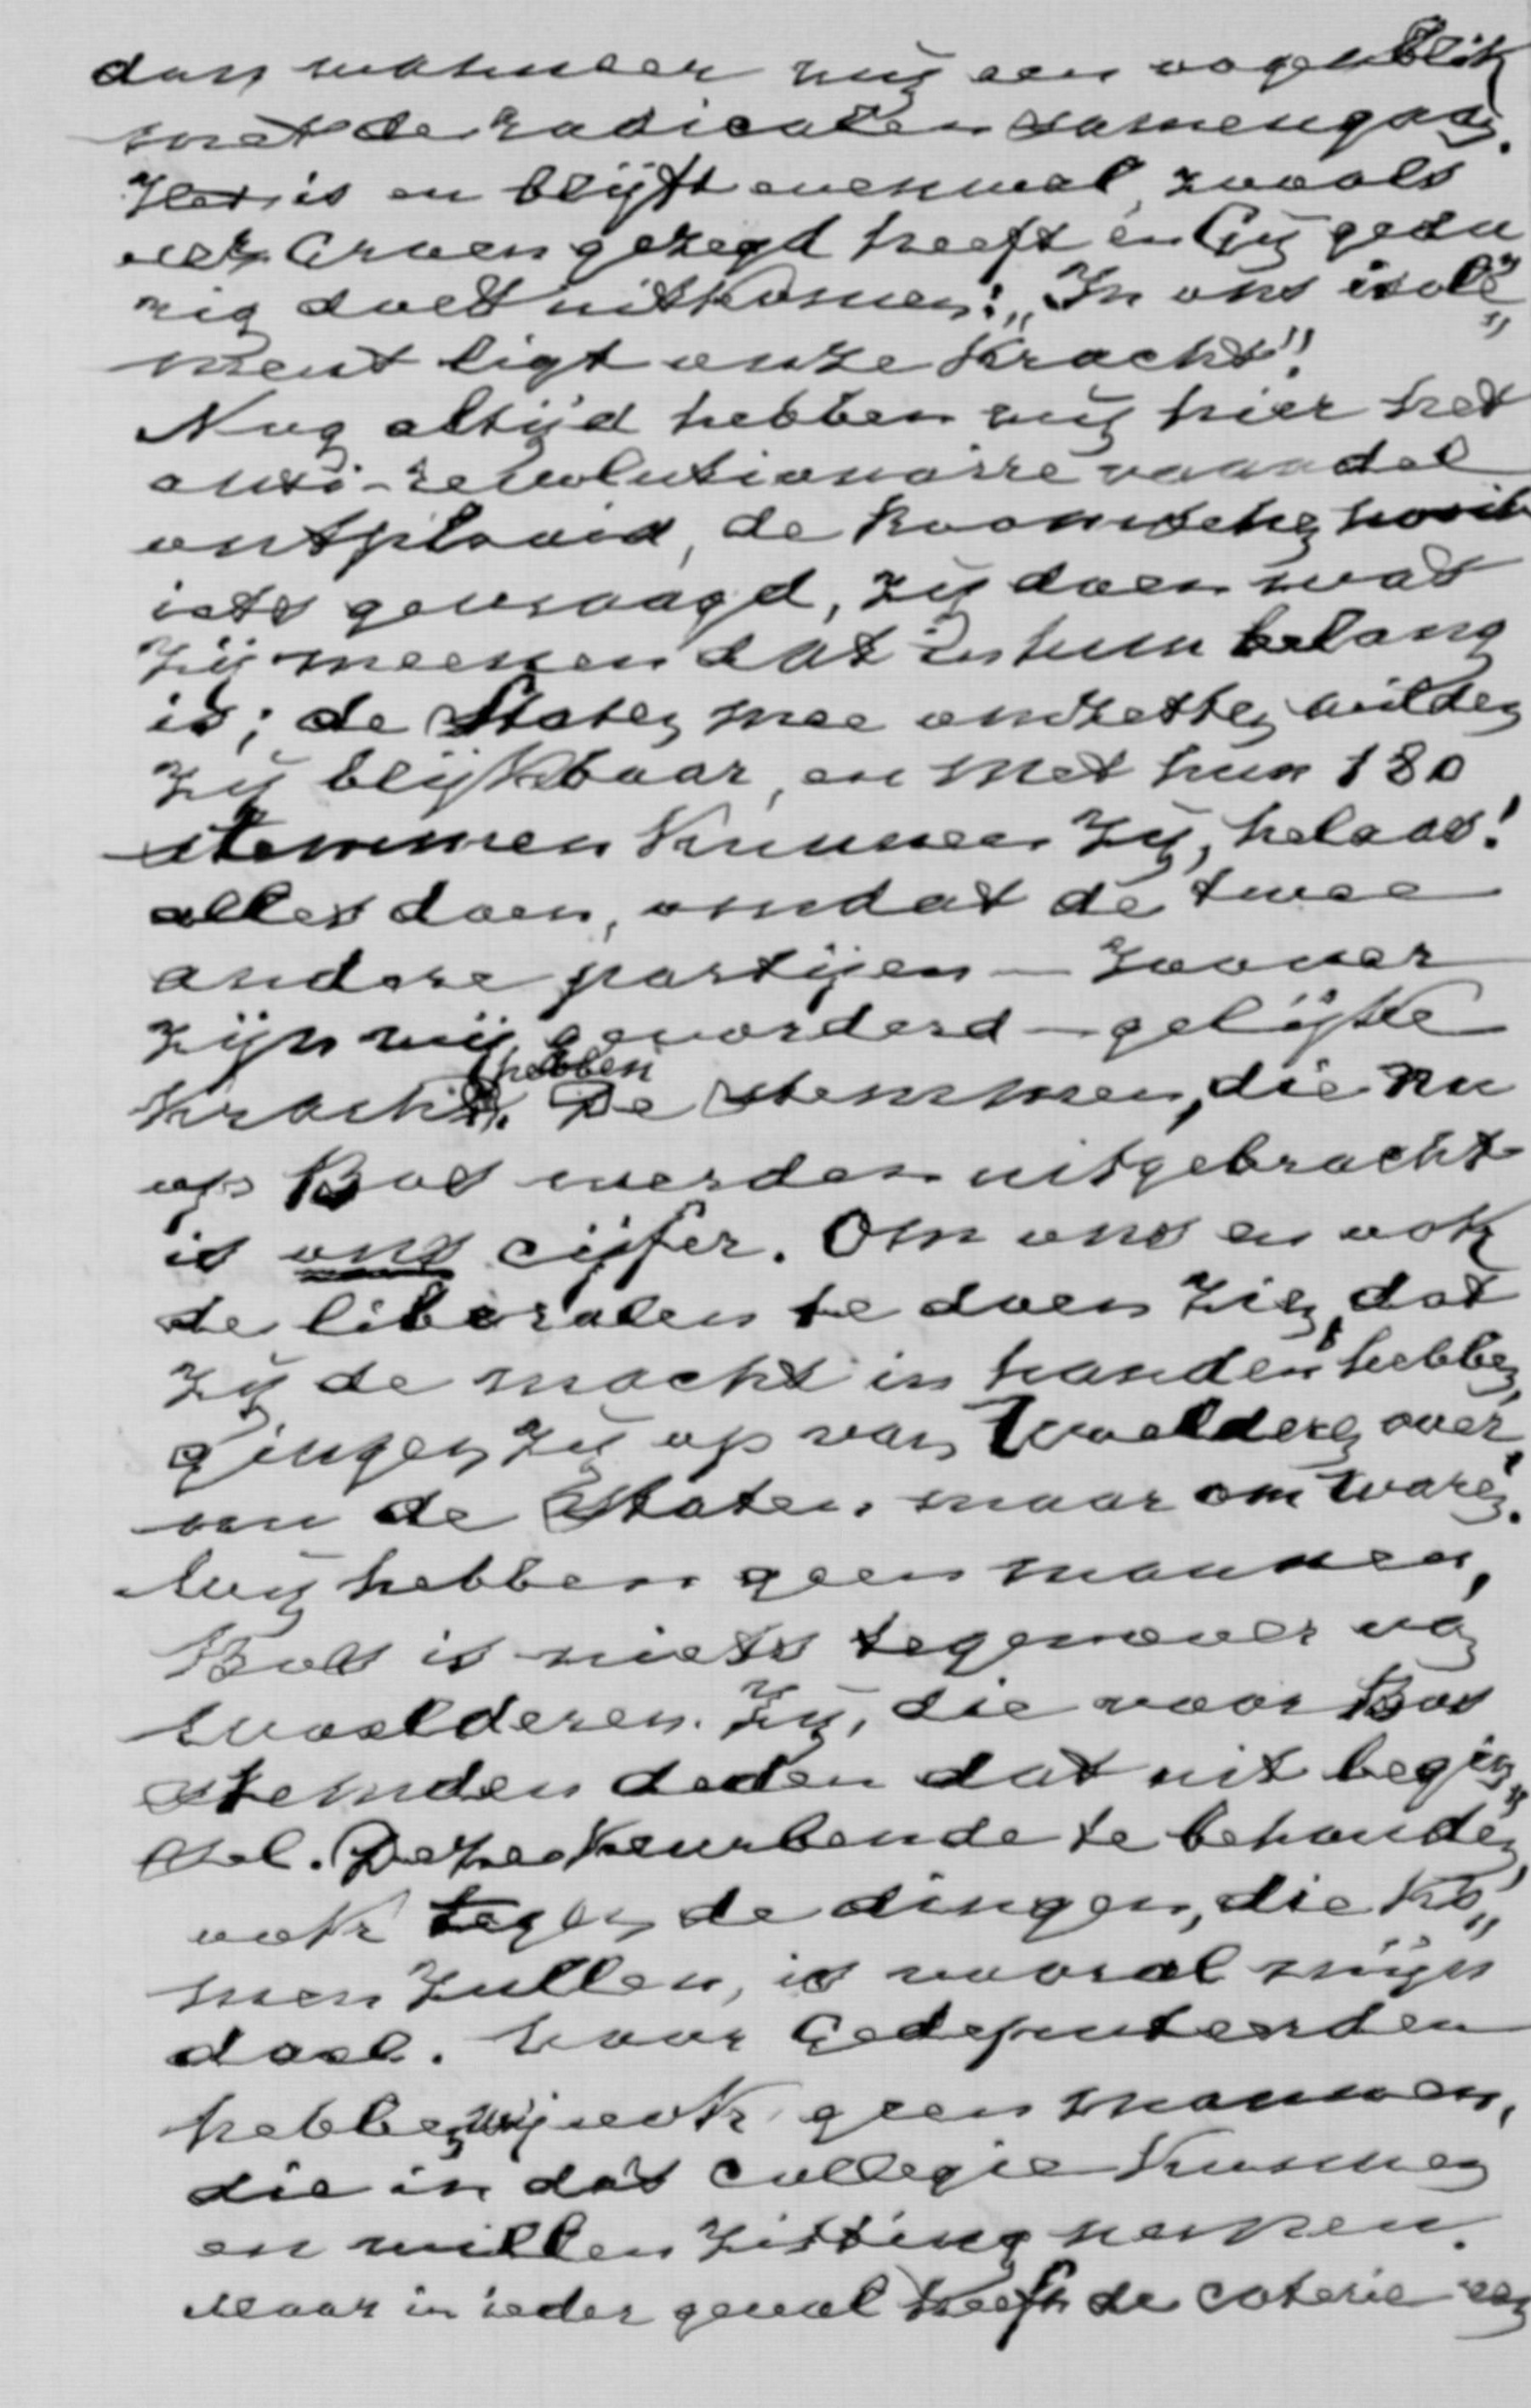 dan wanneer wij een oogenblik
met de radicalen samengaan.
Het is en blijft eenmaal, zooals
eens Groen gezegd heeft en Gij gedu
rig doet uitkomen: „In ons isole„
ment ligt onze Kracht"!
Nog altijd hebben wij hier het
anti-revolutionaire vaandel
ontplooid, de Roomschen nooit
iets gevraagd, zij doen wat
zij meenen dat in hun belang
is; de Staten mee omzetten wilden
zij blijkbaar, en met hun 180
stemmen Kunnen zij, helaas!
alles doen, omdat de twee
andere partijen — zoover
zijn wij gevorderd — gelijke
Kracht hebben. De stemmen, die nu
op Bos werden uitgebracht
is ons cijfer. Om ons en ook
de liberalen te doen zien, dat
zij de macht in handen hebben,
gingen zij op van Waelderen over,
van de Staten, maar om Waren.
Wij hebben geen mannen,
Bos is niets tegenover van
Waelderen. Zij, die voor Bos
stemden deden dat uit begin„
sel. Deze Keurbende te behouden
ook tegen de dingen, die Ko„
men zullen, is vooral mijn
doel. Voor Gedeputeerden
hebben wij ook geen mannen,
die in dat Collegie Kunnen
en willen zitting nemen.
Maar in ieder geval heeft de coterie van